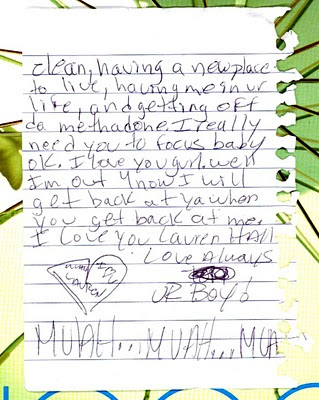 clean, having a newplace
to live, having me in ur
life, and getting off
da methadone. I really
need you to focus baby
ok. I love you gurl. well
I'm out 4now I will
get back at ya when
you get back at me.
I Love You Lauren Hall
Love Always
UR BOY!
MUAH...MUAH...MUA